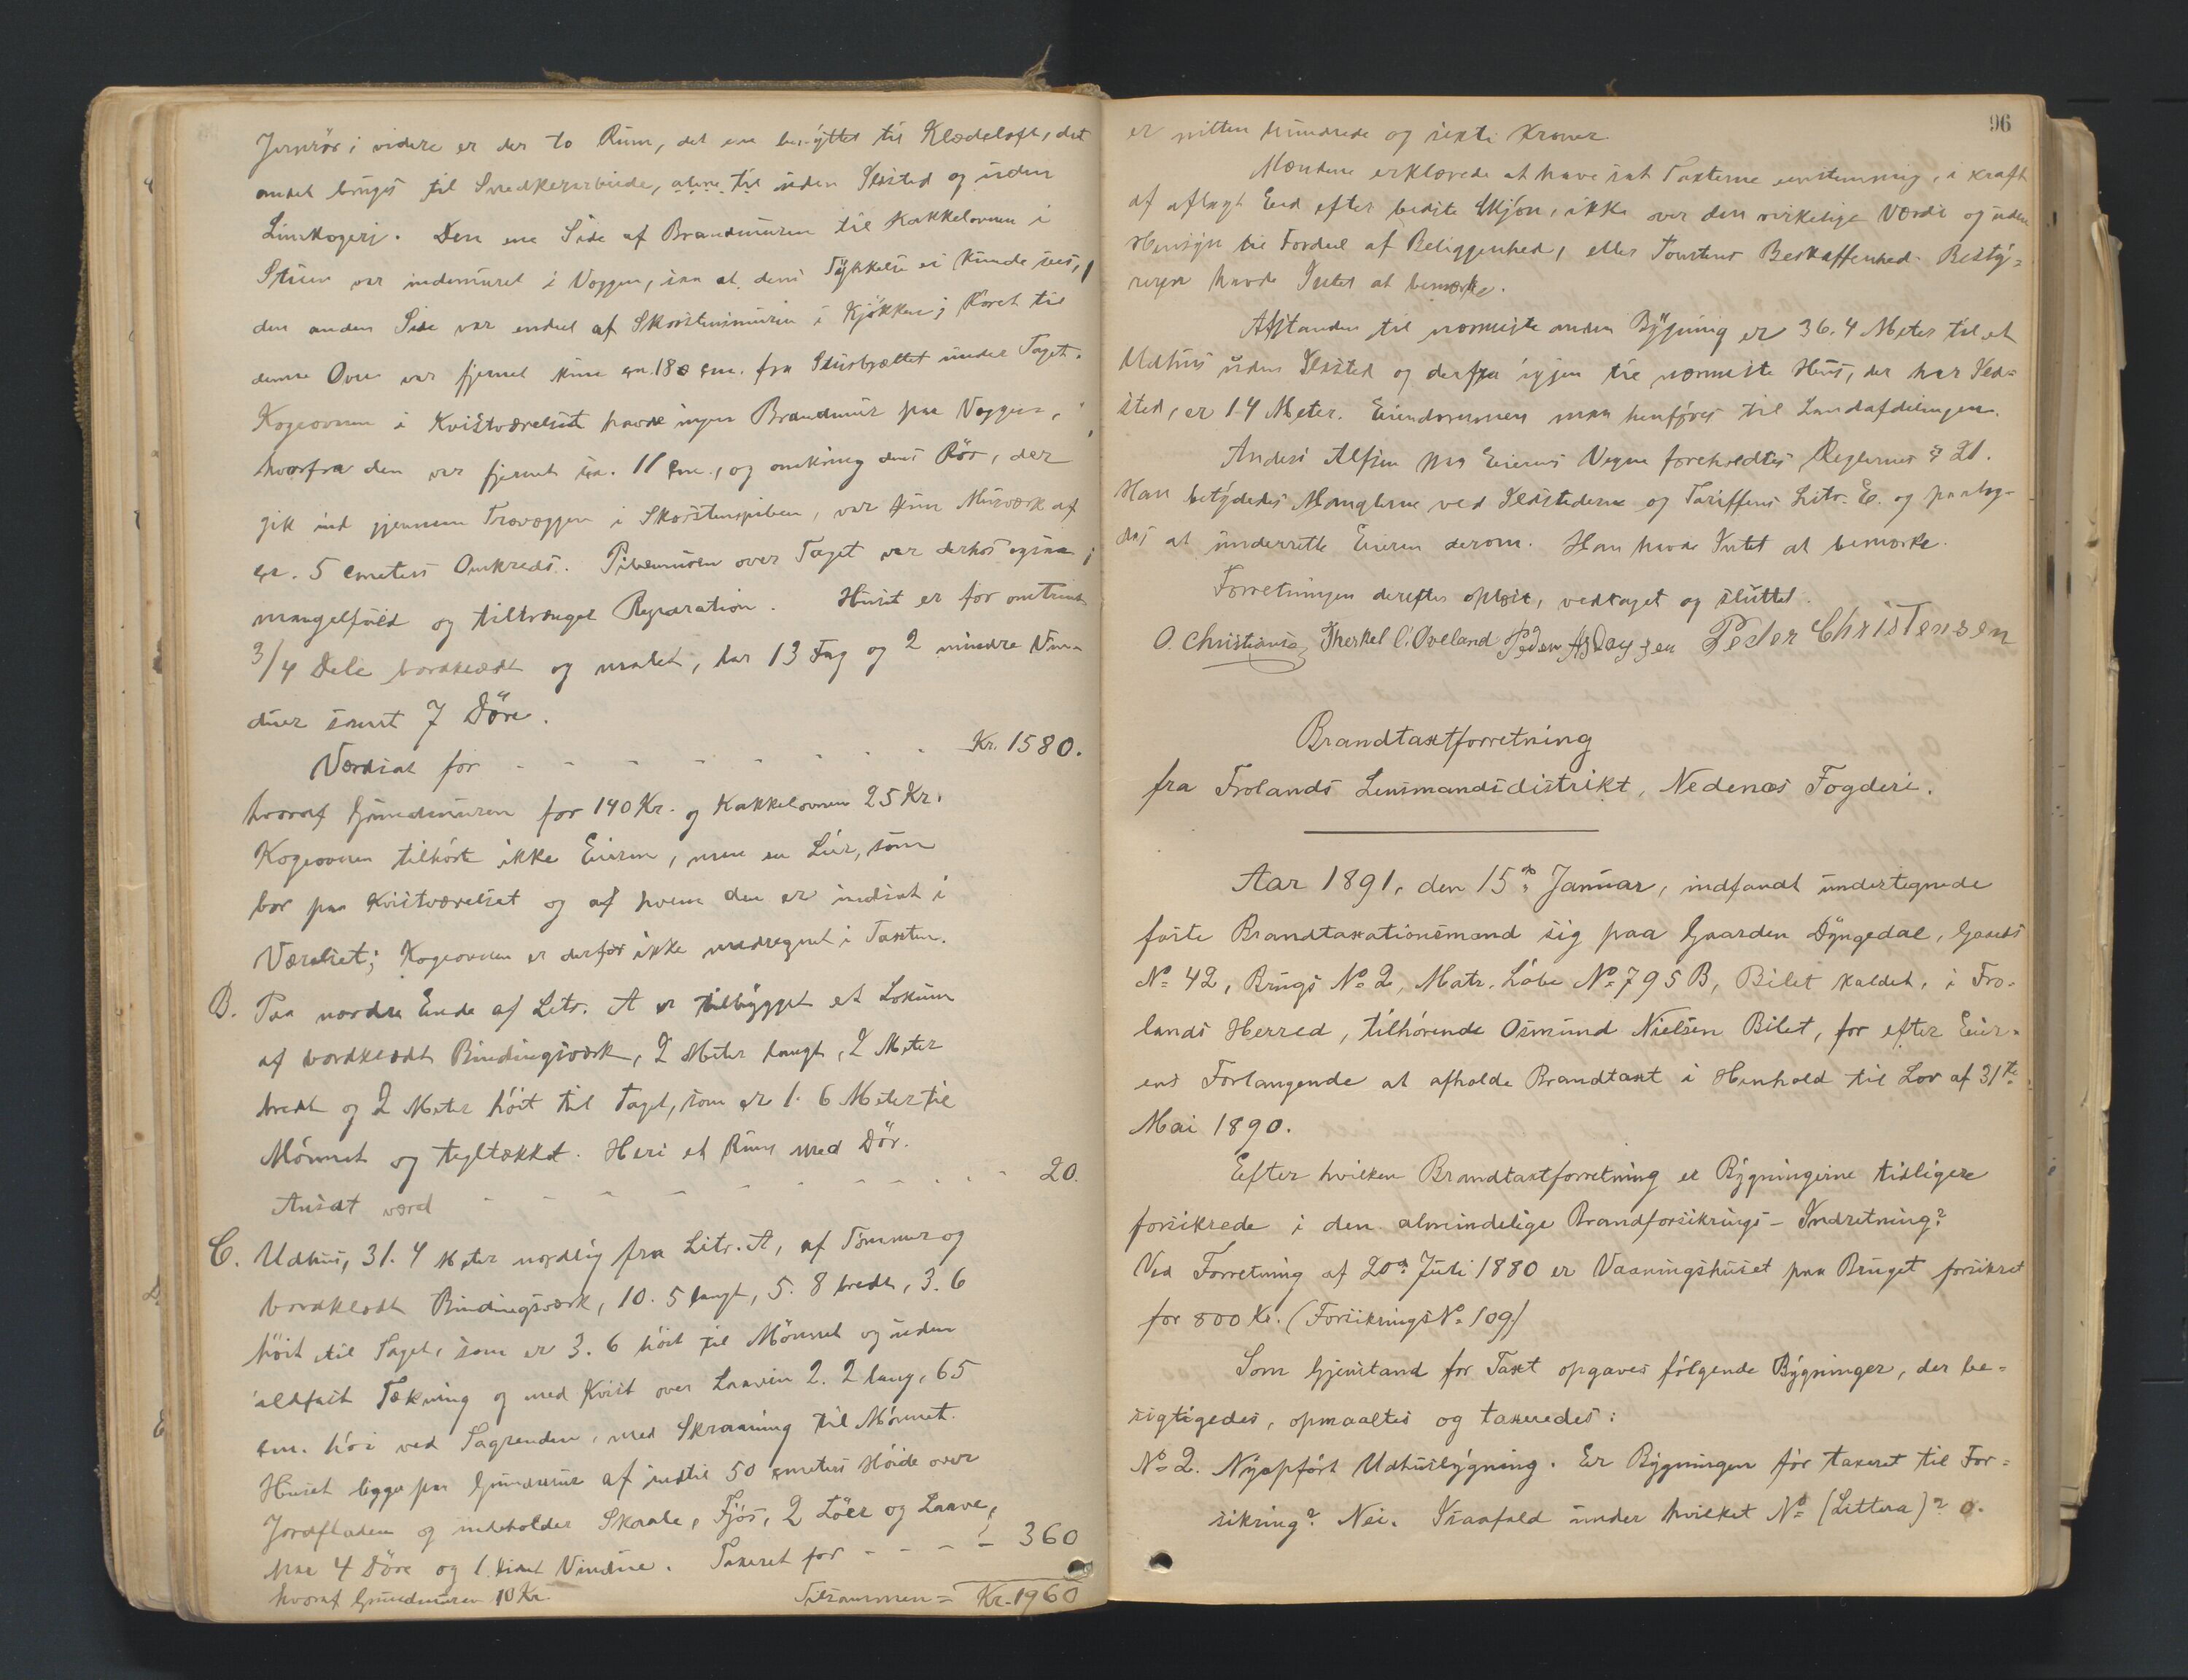 Jernrör; videre er der to Rum, det ene benyttes til Klædeloft, det
andet bruges til Snedkerarbeide, alene til uden Ildsted og uden
Limkogeri. Den ene Side af Brandmuren til Kakkelovnen i
Stuen var indemuret i Væggen, saa at dens Tykkelse ei kunde sees,
den anden Side var endeel af Skorstensmuren i Kjøkken; Röret til
denne Ovn var fjernet kun ca. 18 cm. fra Stusbrættet under Taget.
Kogeovnen i Kvistværelset havde ingen Brandmur paa Væggen,
hvorfra den var fjernet ca. 11 cm., og omkring dens Rör, der
gik ind gjennem Trævæggen i Skorstenspiben, var kun Murværk af
ca. 5 cmeters Omkreds. Pibemuren over Taget var derhos ogsaa
mangelfuld og tiltrænget Reparation. Huset er for omtrent
3/4 Dele bordklædt og malet, har 13 Fag og 2 mindre Vin-
duer samt 7 Döre.
Værdsat for - - - - - - - Kr. 1580.
hvoraf Grundmuren for 140 Kr. og Kakkelovnen 25 Kr.
Kogeovnen tilhörte ikke Eieren, men en Leier, som
bor paa Kvistværelset og af hvem den er indsat i
Værelset; Kogeovnen er derfor ikke medregnet i Taxten.
B. Paa nordre Ende af Litr. A er tilbygget et Lokum
af bordklædt Bindingsværk, 2 Meter langt, 2 Meter
bredt og 2 Meter höit til Taget, som er 1.6 Meter til
Mönnet og tegltækket. Heri et Rum med Dör.
Ansat værd - - - - - - - - - - 20.
C. Udhus, 31.4 Meter nordlig fra Litr. A, af Tömmer og
bordklædt Bindingsværk, 10.5 langt, 5.8 bredt, 3.6
höit til Taget, som er 3.6 höit til Mönnet og uden
ildfast Tækning og med Kvist over Laaven 2.2 lang, 65
cm. höi ved Tagrenden, med Skraaning til Mönnet.
Huset ligger paa Grundmur af indtil 50 cmeters Höide over
Jordfladen og indeholder Skaale, Fjös, 2 Löer og Laave,
har 4 Döre og 1 Vindue. Taxeret for - - - - 360
hvoraf Grundmuren 10 Kr. Tilsammen = Kr. 1960
96
er nitten hundrede og sexti Kroner.
Mændene erklærede at have sat Taxterne eenstemmig, i Kraft
af aflagt Eed efter bedste Skjön, ikke over den virkelige Værdi og uden
Hensyn til Fordeel af Beliggenhed, eller Tomtens Beskaffenhed. Besty-
reren havde Intet at bemærke.
Afstanden til nærmeste anden Bygning er 36.4 Meter til et
Udhus uden Ildsted og derfra igjen til nærmeste Huus, der har Ild-
sted, er 14 Meter. Eiendommen maa henföres til Landafdelingen.
Anders Alfsen paa Eierens Vegne foreholdtes Reglernes § 21.
Han betydedes Manglerne ved Ildstederne og Tariffens Litr. E. og paalag-
des at underrette Eieren derom. Han havde Intet at bemærke.
Forretningen derefter oplæst, vedtaget og sluttet.
O. Christiansen Therkel C. Oveland Peder Aslaksen Peder Christensen
Brandtaxtforretning
fra Frolands Lensmandsdistrikt, Nedenæs Fogderi.
Aar 1891, den 15de Januar, indfandt undertegnede
faste Brandtaxationsmænd sig paa Gaarden Dyngedal, Gaards
No 42, Brugs No 2, Matr. Löbe No 795 B, Bilet kaldet, i Fro-
lands Herred, tilhørende Osmund Nielsen Bilet, for efter Eier-
ens Forlangende at afholde Brandtaxt i Henhold til Lov af 31te
Mai 1890.
Efter hvilken Brandtaxtforretning er Bygningerne tidligere
forsikrede i den almindelige Brandforsikrings-Indretning?
Ved Forretning af 20de Juli 1880 er Vaaningshuset paa Bruget forsikret
for 800 Kr. (Forsikrings No 109)
Som Gjenstand for Taxt opgaves fölgende Bygninger, der be-
sigtigedes, opmaaltes og taxeredes:
No 2. Nyopfört Udhusbygning. Er Bygningen för taxeret til For-
sikring? Nei. Isaafald under hvilket No (Littera)? 0.